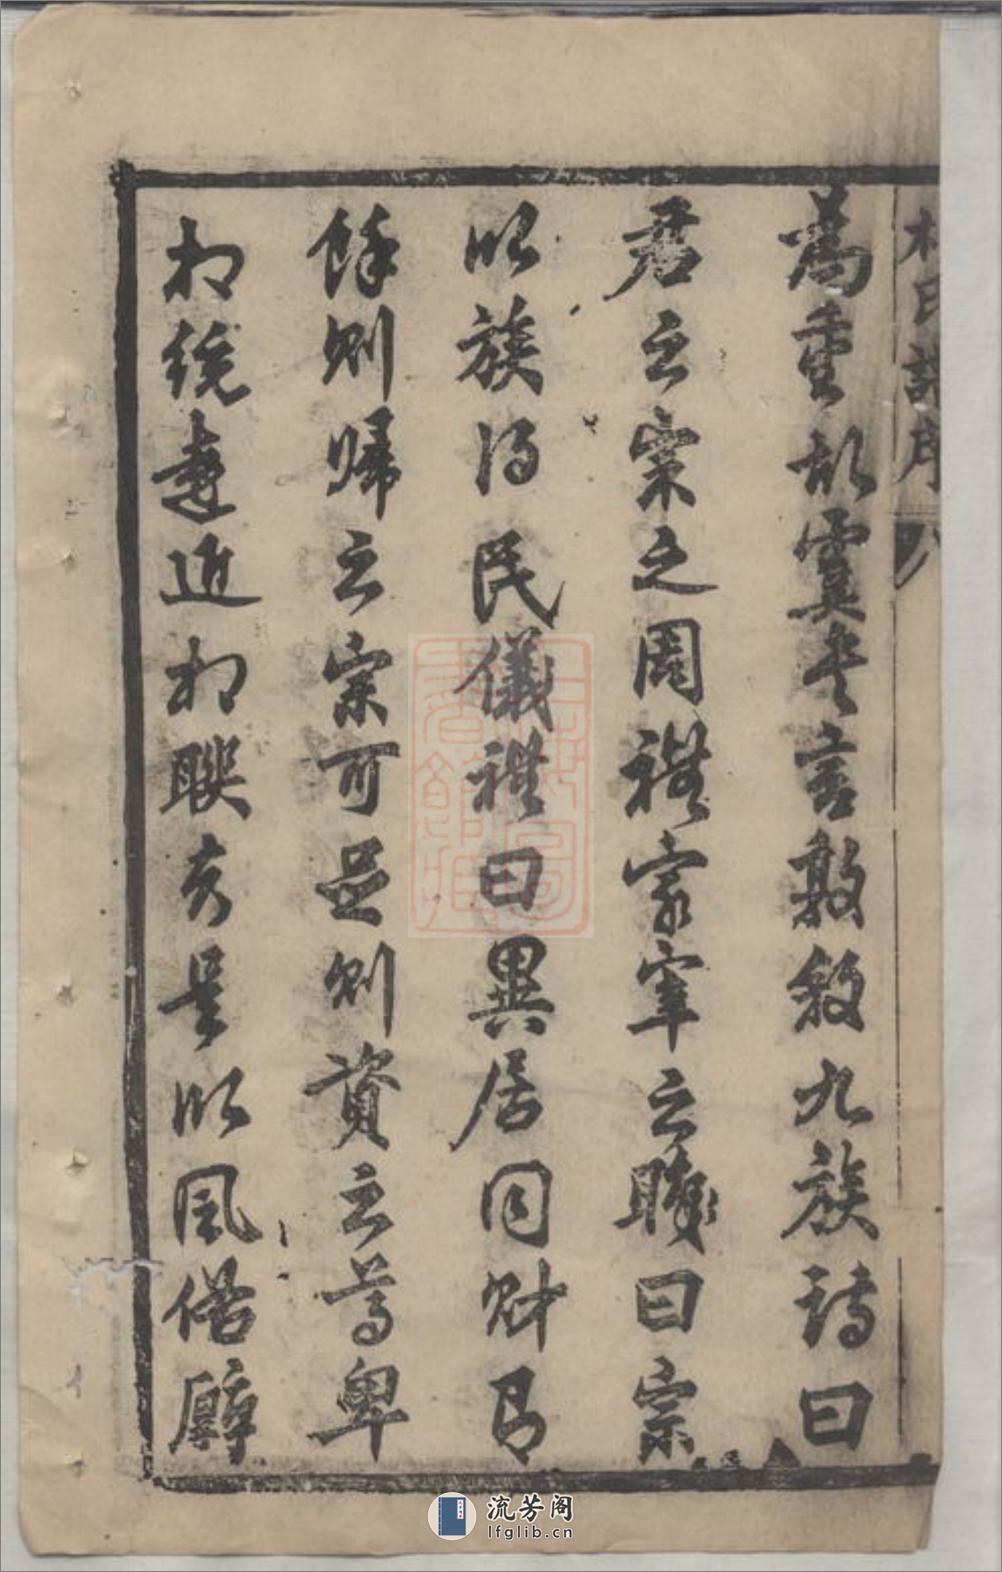 為重故虞書言敦叙九族詩曰
君之宗之周禮冢宰之職曰宗
以族得民儀禮曰異居同財有
餘則歸之宗不足則資之尊卑
相統遠近相聯於是以風俗醇
氏譜序
流芳阁
lfglib.cn